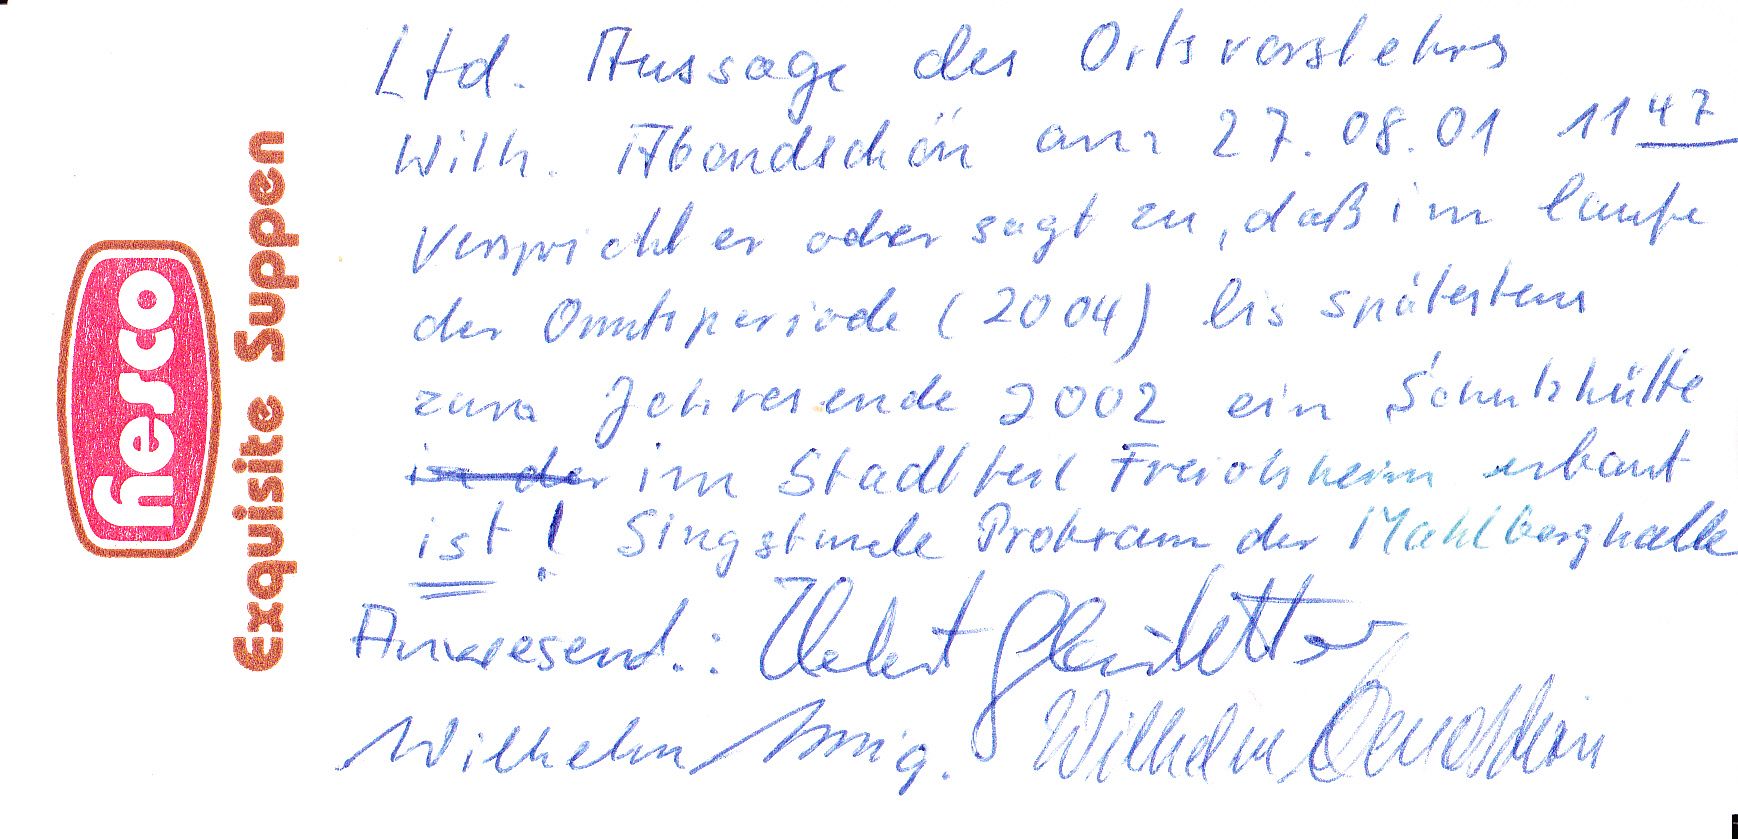 hesco
Exquisite Suppen
Ltd. Aussage des Ortsvorstehers
Wilh. Abendschön am 27.08.01 11 47
Verspricht er oder sagt zu, daß im laufe
der Amtsperiode (2004) bis spätestens
zum Jahresende 2002 ein Schutzhütte
in der im Stadtteil Freiolsheim erbaut
ist! Singstunde Proberaum der Mahlberghalle
Anwesend.:
Wilhelm Wilhelm Abendschön